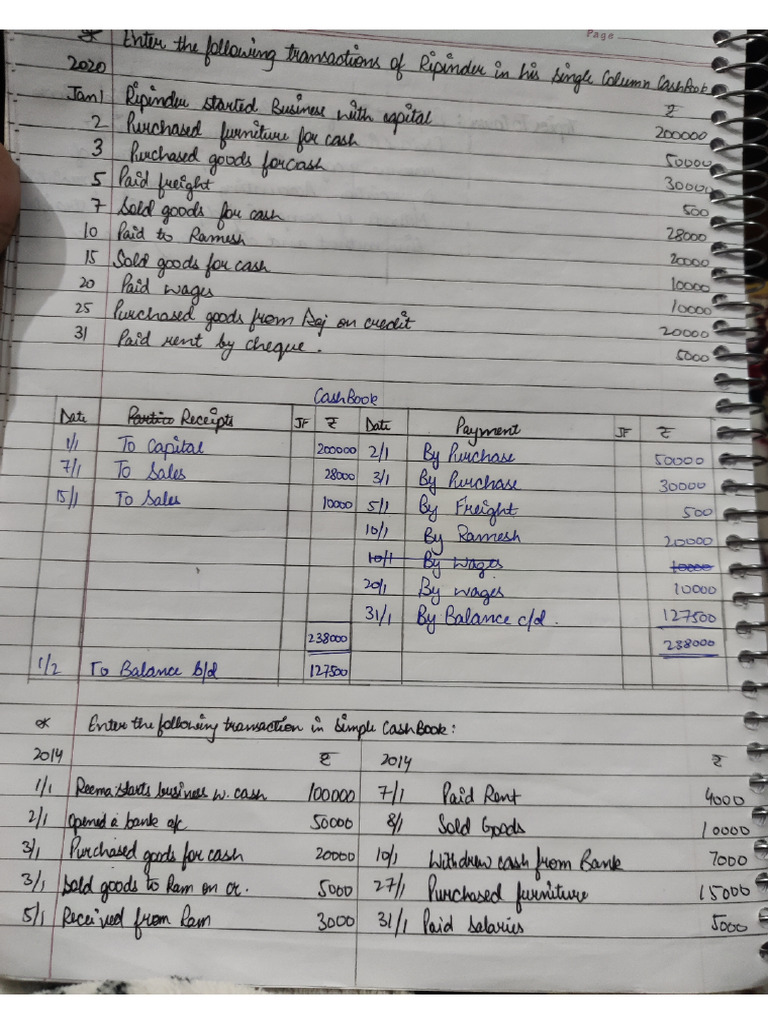 Page
* Enter the following transactions of Ripinder in his Single Column CashBook
2020 ₹
Jan 1 Ripinder started Business with capital 200000
2 Purchased furniture for cash 50000
3 Purchased goods for cash 30000
5 Paid freight 500
7 Sold goods for cash 28000
10 Paid to Ramesh 20000
15 Sold goods for cash 10000
20 Paid wages 10000
25 Purchased goods from Raj on credit 20000
31 Paid rent by cheque. 5000
CashBook
Date Particu Receipts JF ₹ Date Payment JF ₹
1/1 To Capital 200000 2/1 By Purchase 50000
7/1 To Sales 28000 3/1 By Purchase 30000
15/1 To Sales 10000 5/1 By Freight 500
10/1 By Ramesh 20000
10/1 By Wages 10000
20/1 By Wages 10000
31/1 By Balance c/d. 127500
238000 238000
1/2 To Balance b/d 127500
* Enter the following transaction in Simple CashBook:
2014 ₹ 2014 ₹
1/1 Reema starts business w. cash 100000 7/1 Paid Rent 4000
2/1 Opened a bank a/c 50000 8/1 Sold Goods 10000
3/1 Purchased goods for cash 20000 10/1 Withdrew cash from Bank 7000
3/1 Sold goods to Ram on cr. 5000 27/1 Purchased furniture 15000
5/1 Received from Ram 3000 31/1 Paid Salaries 5000